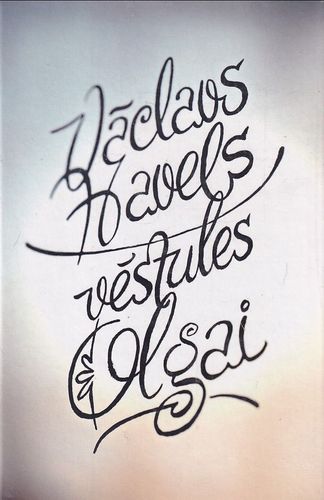 Václavs
Havels
vēstules
Olgai